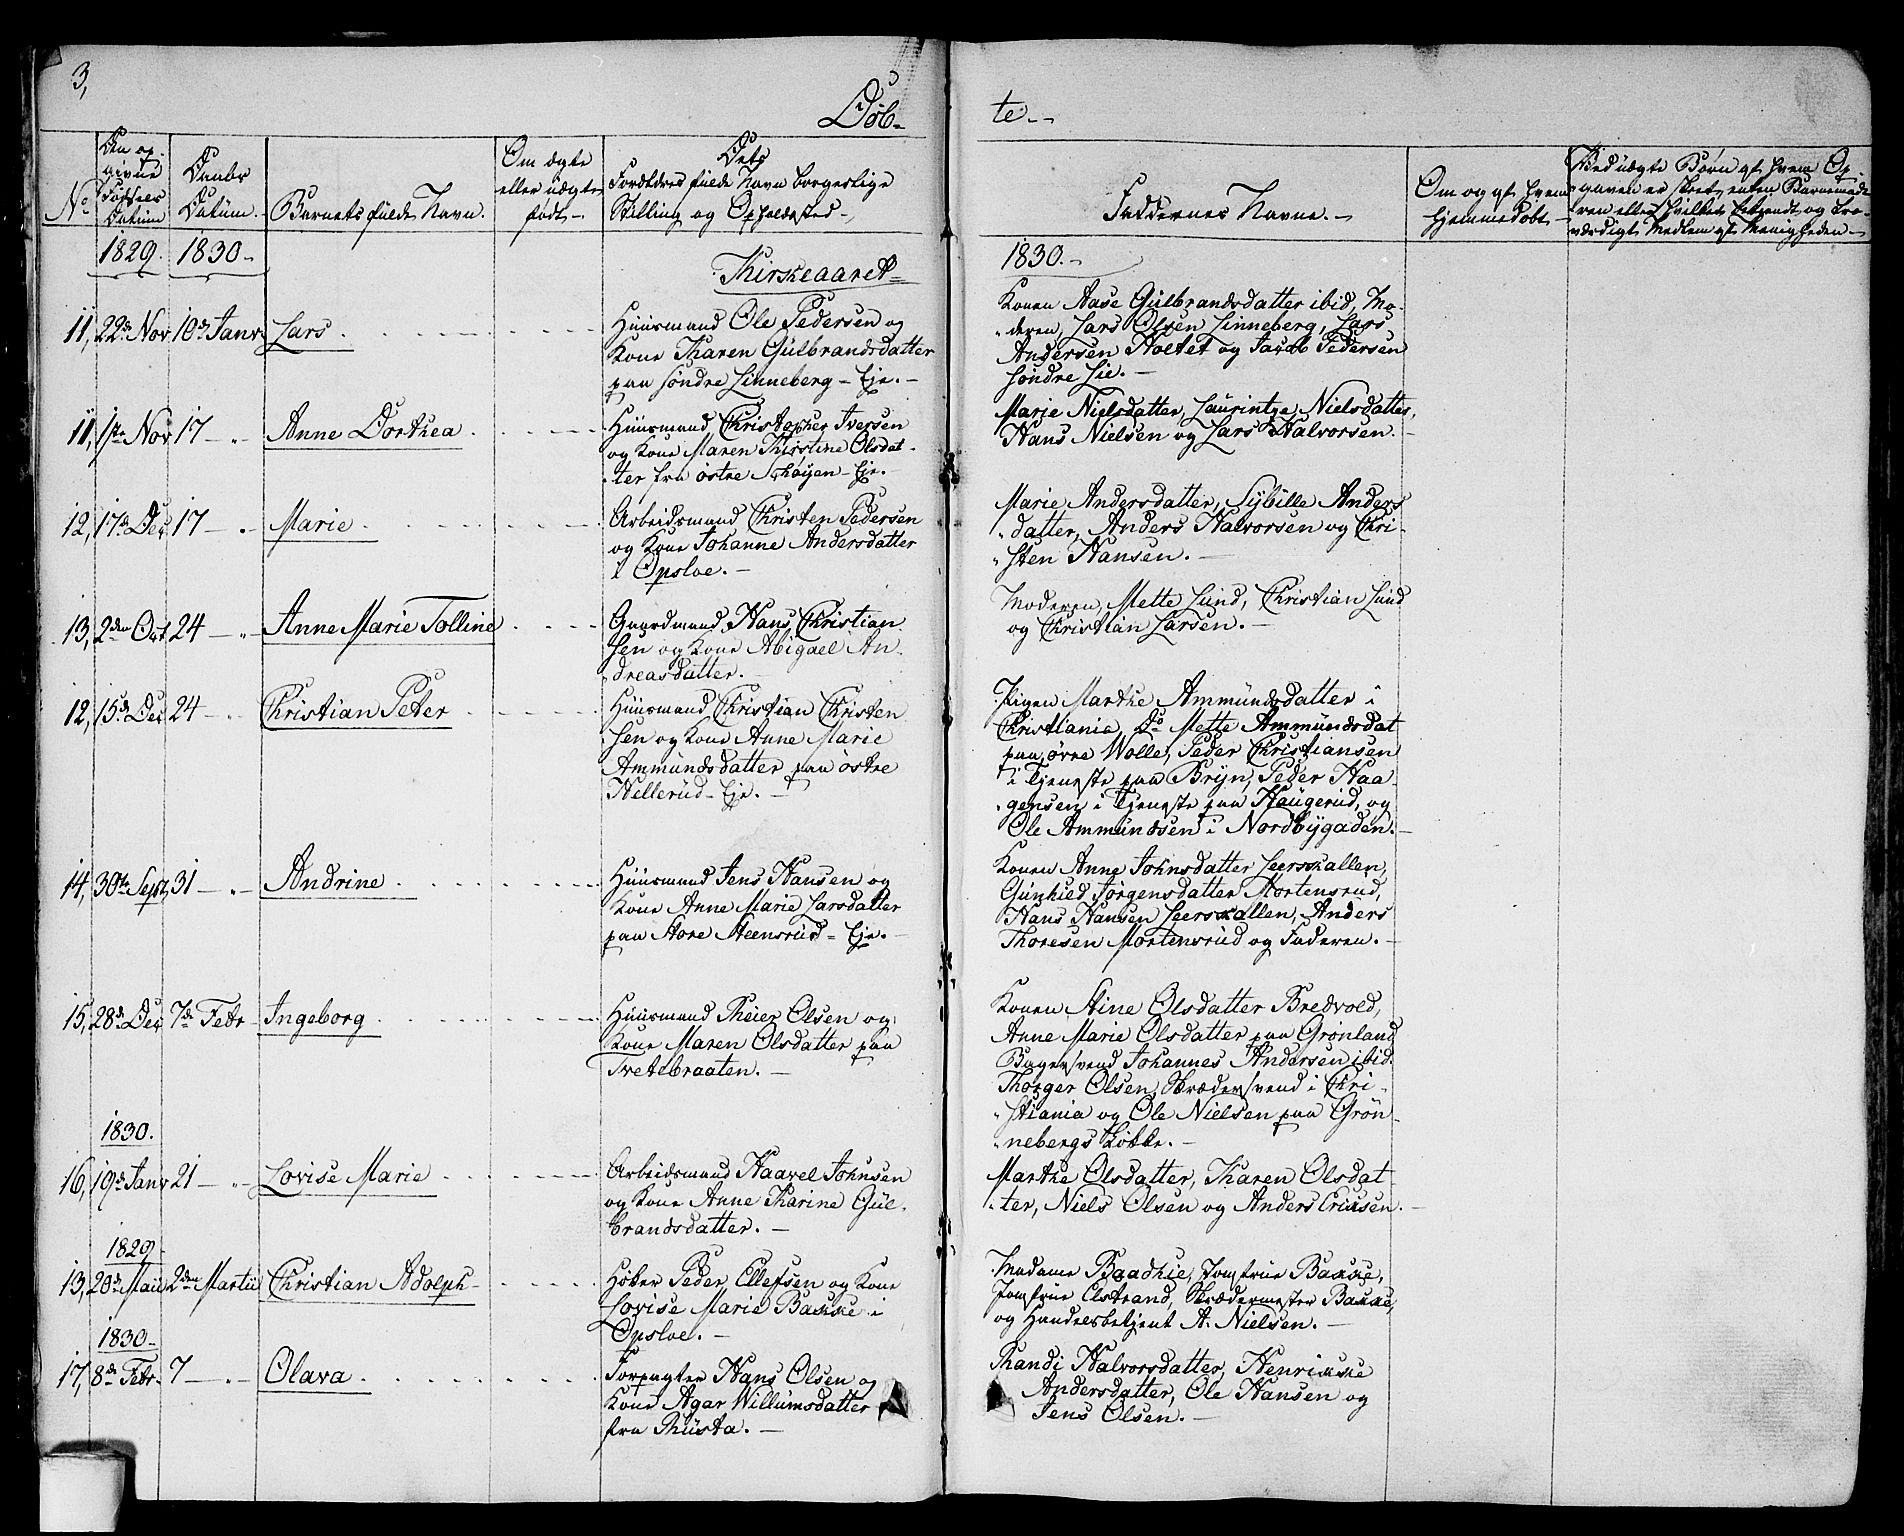 3,
Døb-
te.--
No
Den op-
givne
Fødsels
Datum
Daabs
Datum.
Barnets fulde Navn.
Om ægte
eller uægte
født-
Dets
Forældres fulde Navn borgerlige
Stilling og Opholdssted-
Faddernes Navne.-
Om og af hvem
hjemmedøbt-
Ved uægte Børn af hvem Op-
gaven er skeet, enten Barnemod-
ren eller hvilket bekjendt og tro-
værdigt Medlem af Menigheden-
1829. 1830-
Kirkeaaret
1830.-
11, 22de Nov 10de Janr Lars
Huusmand Ole Pedersen og
Kone Karen Gulbrandsdatter
paa søndre Linneberg-Eje.-
Konen Aase Gulbrandsdatter ibid, Mo-
deren, Lars Olsen Linneberg, Lars
Andersen Holtet og Jacob Pedersen
søndre Lie.-
11, 1ste Nov 17-"- Anne Dorthea
Huusmand Christopher Iversen
og Kone Maren Kirstine Olsdat-
ter fra østre Schøyen-Eje.-
Marie Nielsdatter, Laurintze Nielsdatter,
Hans Nielsen og Lars Halvorsen.-
12, 17de Dec 17-" Marie
Arbeidsmand Christen Pedersen
og Kone Johanne Andersdatter
i Opsloe.-
Marie Andersdatter, Sybille Anders
datter, Anders Halvorsen og Chri-
sten Hansen.-
13, 2den Oct 24-"- Anne Marie Tolline
Gaardmand Hans Christian
sen og Kone Abigael An-
dreasdatter.
Moderen, Mette Lund, Christian Lund
og Christian Larsen.-
12, 15de Dec 24-"- Christian Peter
Huusmand Christian Christen
sen og Kone Anne Marie
Ammundsdatter paa østre
Hellerud-Eje.-
Pigen Marthe Ammundsdatter i
Christiania, Do Mette Ammundsdat
paa øvre Wolle, Peder Christiansen
i Tjeneste paa Bryn, Peder Haa-
gensen i Tjeneste paa Haugerud, og
Ole Ammundsen i Nordbygaden.-
14, 30te Sept, 31-"- Andrine
Huusmand Jens Hansen og
Kone Anne Marie Larsdatter
paa Store Steensrud-Eje.-
Konen Anne Johnsdatter Leerskallen,
Gunhild Jørgensdatter Mortensrud,
Hans Hansen Leerskallen, Anders
Thoresen Mortensrud og Faderen.-
15, 28de Dec 7de Febr- Ingeborg
Huusmand Peder Olsen og
Kone Maren Olsdatter paa
Tvetebraaten.-
Konen Stine Olsdatter Bredvold,
Anne Marie Olsdatter paa Grønland
Bagersvend Johannes Andersen ibid.
Thorger Olsen, Skrædersvend i Chri-
stiania og Ole Nielsen paa Grøn-
nebergs Løkke.-
1830.
16, 19de Janr 21-"- Lovise Marie
Arbeidsmand Haavel Johnsen
og Kone Anne Karine Gul-
brandsdatter.-
Marthe Olsdatter, Karen Olsdat-
ter, Niels Olsen og Anders Ericksen.-
1829-
13, 20de Mai 2den Martii Christian Adolph-
Høker Peder Ellefsen og Kone
Lovise Marie Bakke i
Opsloe.-
Madame Baadhie, Jomfrue Bakke,
Jomfrue Elstrand, Skrædermester Bakke,
og Handelsbetjent A. Nielsen.-
1830-
17, 8de Febr. 7-"- Olava
Forpagter Hans Olsen og
Kone Agar Willumsdatter
fra Rustad.-
Randi Halvorsdatter, Henrikke
Andersdatter, Ole Hansen og
Jens Olsen.-